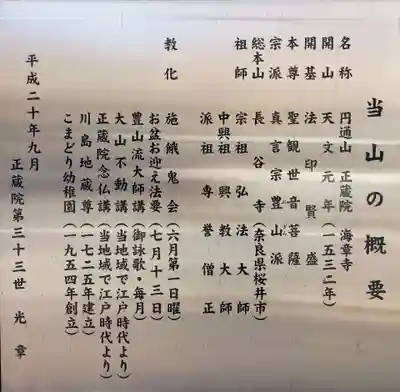 当山の概要
名称 円通山 正蔵院 海章寺
開山 天文元年(一五三二年)
開基 法印賢盛
本尊 聖観世音菩薩
宗派 真言宗豊山派
総本山 長谷寺(奈良県桜井市)
祖師 宗祖 弘法大師
中興祖 興教大師
派祖 専誉僧正
教化 施餓鬼会(六月第一日曜)
お盆お迎え法要(七月十三日)
豊山流大師講(御詠歌・毎月)
大山不動講(当地域で江戸時代より)
正蔵院念仏講(当地域で江戸時代より)
川島地蔵尊(一七二五年建立)
こまどり幼稚園(一九五四年創立)
平成二十年九月
正蔵院第三十三世 光章